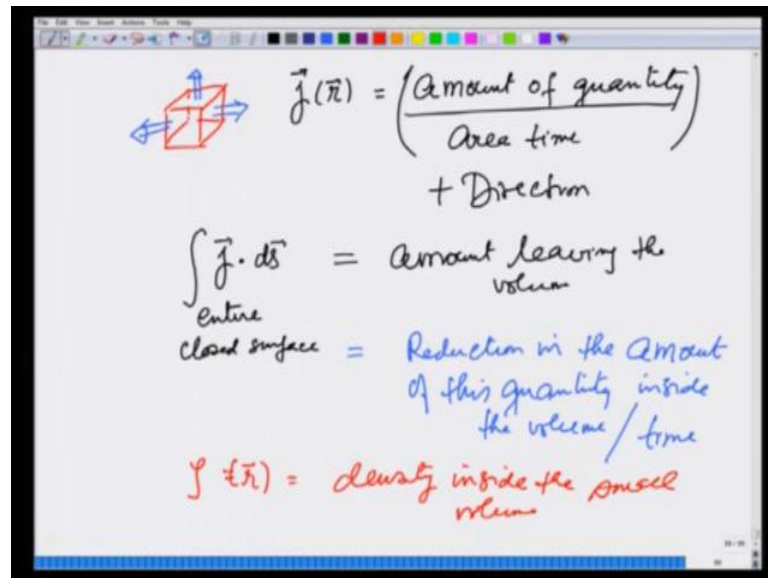 File Edit View Insert Actions Tools Help
j⃗(r⃗) = (Amount of quantity / Area time)
+ Direction
∫ j⃗ · ds⃗ = amount leaving the
volum
entire
closed surface = Reduction in the amount
of this quantity inside
the volume / time
ρ(r⃗) = density inside the small
volume